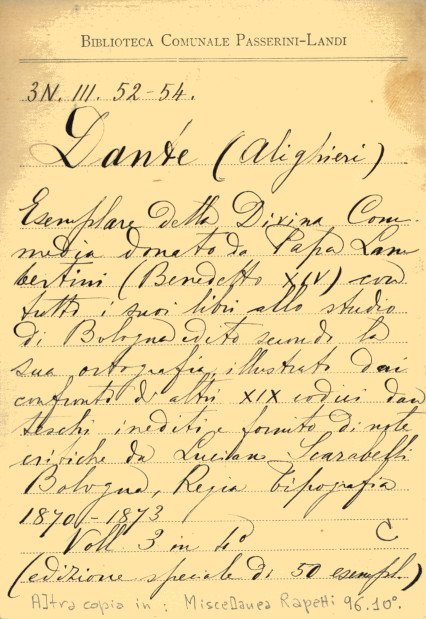 BIBLIOTECA COMUNALE PASSERINI-LANDI
3N. III. 52-54.
Dante (Alighieri)
Esemplare della Divina Com-
media donato da Papa Lam
bertini (Benedetto XIV) con
tutti i suoi libri allo studio
di Bologna edito secondo la
sua ortografia, illustrato dai
confronti di altri XIX codici dan
teschi inediti e fornito di note
critiche da Luciano Scarabelli
Bologna, Regia Tipografia
1870-1873
Voll 3 in 4° C
(edizione speciale di 50 esempl.)
Altra copia in: Miscellanea Rapetti 96.10°.